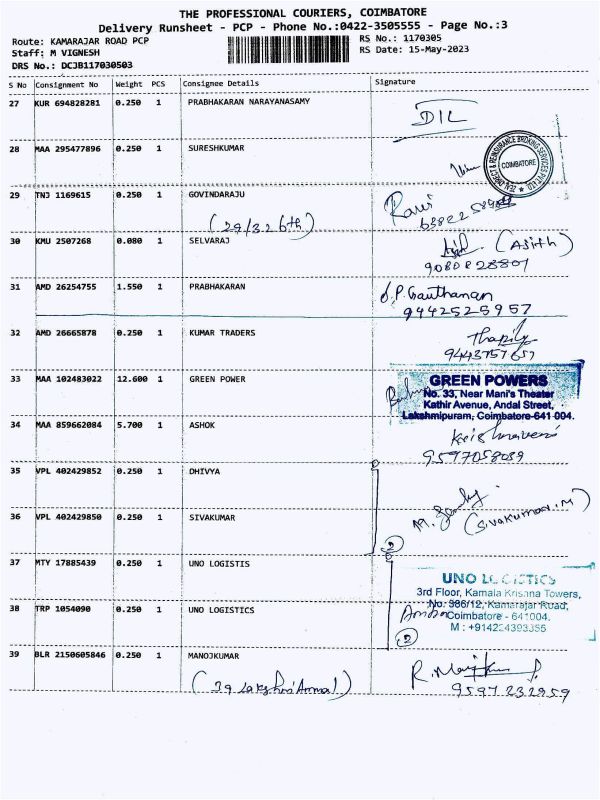 THE PROFESSIONAL COURIERS, COIMBATORE
Delivery Runsheet - PCP - Phone No.:0422-3505555 - Page No.:3
Route: KAMARAJAR ROAD PCP
RS No.: 1170305
Staff: M VIGNESH
RS Date: 15-May-2023
DRS No.: DCJB117030503
S No Consignment No Weight PCS Consignee Details Signature
27 KUR 694828281 0.250 1 PRABHAKARAN NARAYANASAMY
DIL
28 MAA 295477896 0.250 1 SURESHKUMAR
ZEAL DIRECT & REINSURANCE BROKING SERVICES PVT LTD
COIMBATORE
29 TNJ 1169615 0.250 1 GOVINDARAJU
(29/32 6th)
Ravi
30 KMU 2507268 0.080 1 SELVARAJ
(Asith)
9080828807
31 AMD 26254755 1.550 1 PRABHAKARAN
J.P. Gauthanan
9442525957
32 AMD 26665878 0.250 1 KUMAR TRADERS
9443757657
33 MAA 102483022 12.600 1 GREEN POWER
GREEN POWERS
No. 33, Near Mani's Theater
Kathir Avenue, Andal Street,
Lakshmipuram, Coimbatore-641 004.
34 MAA 859662084 5.700 1 ASHOK
Krishnaveni
9597058039
35 VPL 402429852 0.250 1 DHIVYA
36 VPL 402429850 0.250 1 SIVAKUMAR
(Sivakumar.M)
2
37 MTY 17885439 0.250 1 UNO LOGISTIS
UNO LOGISTICS
3rd Floor, Kamala Krisana Towers,
38 TRP 1054090 0.250 1 UNO LOGISTICS
No: 386/12, Kamarajar Road,
Coimbatore - 641004.
M : +914224393355
2
39 BLR 2150605846 0.250 1 MANOJKUMAR
(39 Lakshmi Ammal)
9597232959